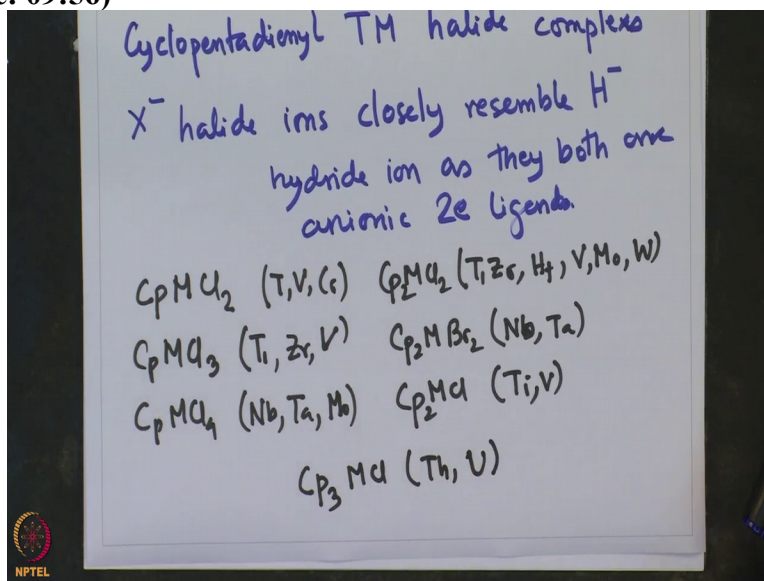 e: 09:56)
Cyclopentadienyl TM halide complexs
X⁻ halide ions closely resemble H⁻
hydride ion as they both are
anionic 2e ligands.
CpMCl₂ (T,V,Cr) Cp₂MCl₂ (Ti,Zr,Hf,V,Mo,W)
CpMCl₃ (Ti,Zr,V) Cp₂MBr₂ (Nb,Ta)
CpMCl₄ (Nb,Ta,Mo) Cp₂MCl (Ti,V)
Cp₃MCl (Th,U)
NPTEL